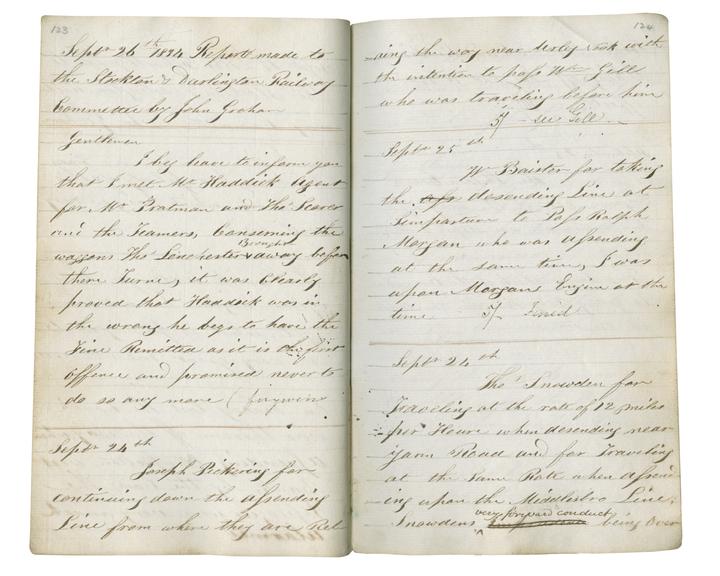 123
Septr 26th 1834 Report made to
the Stockton & Darlington Railway
Committee by John Graham
Gentlemen
I beg leave to inform you
that I met Mr Haddick Agent
for Mr Pratman and Thos
and the Teamers, Conserning the
waggons Thos Linchester & Brought away before
there Turne, it was Clearly
proved that Haddick was in
the wrong he begs to have the
Fine Remitted as it is the first
offence and promised never to
do so any more (forgiven
Septr 24th
Joseph Pickering for
continuing down the assending
Line from where they are Rel
124
-aing the way near Urley Nook with
the intention to pass Wm Gill
who was traveling before him
5/- see Gill
Septr 25th
Wm Baister for taking
the desending Line at
Simpasture to Pass Ralph
Morgan who was assending
at the same time, I was
upon Morgans Engine at the
time 5/- Fined
Septr 24th
Thos Snowden for
Traveling at the rate of 12 miles
per Houre when desending near
Yarm Road and for Traveling
at the same Rate when assend
ing upon the Middlesbro Line,
Snowdens very forward conduct being over